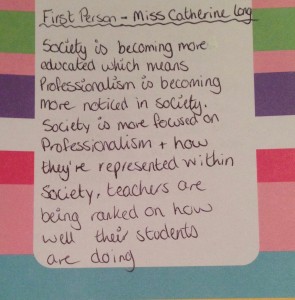 First Person - Miss Catherine Long
Society is becoming more
educated which means
Professionalism is becoming
more noticed in society.
Society is more focused on
Professionalism + how
they're represented within
Society, teachers are
being ranked on how
well their students
are doing